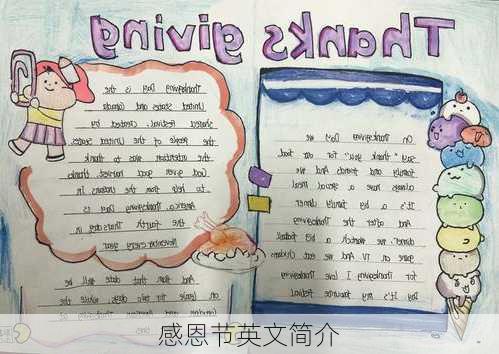 Thanks giving
On Thanksgiving Day we
say "thank you" for our food
family and friends And we
always have a special meal
It's a big family dinner
And after the Thanksgiving
dinner we watch a big football
game on TV And we eat chicken
for Thanksgiving I love Thanksgiving
Day It's my favourite festival
Thanksgiving Day is the
United States and Canada
shared festival, created by
the people of the United States
the intention was to thank
God given good harvest thanks
to help from the Indians in
America, Thanksgiving Day is
the fourth Thursday in
November every year
And from that date will be
on leave for two days, while the
感恩节英文简介